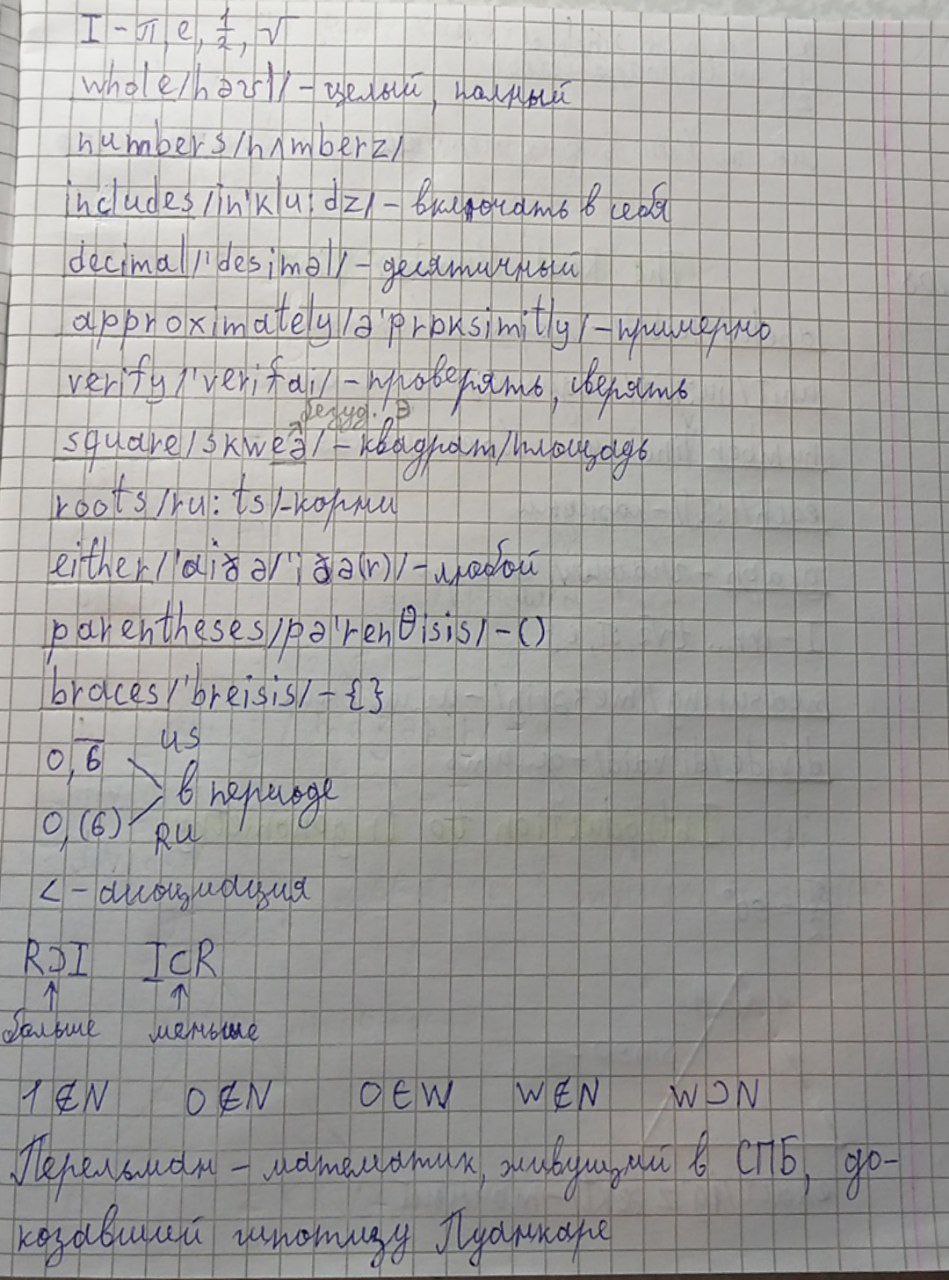 I - π, e, 1/2, √
whole /həʊl/ - целый, полный
numbers /nʌmberz/
includes /in'klu:dz/ - включать в себя
decimal /'desiməl/ - десятичный
approximately /ə'prɒksimitly/ - примерно
verify /'verifai/ - проверять, сверять
безуд. Э
square /skweə/ - квадрат/площадь
roots /ru:ts/ - корни
either /'aiðə/'iðə(r)/ - любой
parentheses /pə'renθisis/ - ()
braces /'breisis/ - {}
0,6̅ US
в периоде
0,(6) RU
< - ассоциация
R⊃I I⊂R
↑ ↑
больше меньше
1∉N 0∉N 0∈W W∉N W⊃N
Перельман - математик, живущий в СПБ, до-
козавшей гипотизу Пуанкаре